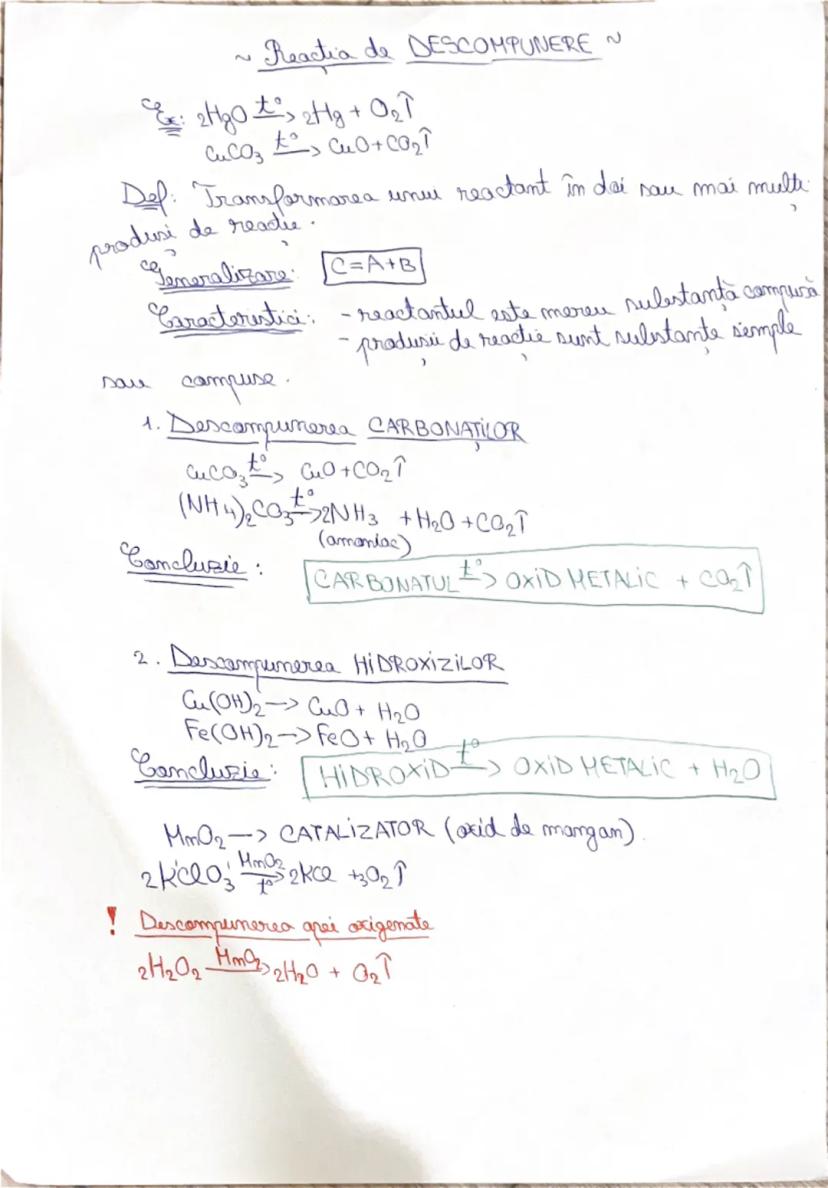 ~ Reacția de DESCOMPUNERE ~
Ex: 2HgO t°→ 2Hg + O₂↑
CuCO₃ t°→ CuO+CO₂↑
Def: Transformarea unui reactant în doi sau mai mulți
produși de reacție.
Generalizare: C=A+B
Caracteristici: - reactantul este mereu substanță compusă
- produșii de reacție sunt substanțe simple
sau compuse.
1. Descompunerea CARBONAȚILOR
CuCO₃ t°→ CuO+CO₂↑
(NH4)₂CO₃ t°→ 2NH3 +H₂O +CO₂↑
(amoniac)
Concluzie: CARBONATUL t°→ OXID METALIC + CO₂↑
2. Descompunerea HIDROXIZILOR
Cu(OH)₂ → CuO + H₂O
Fe(OH)₂ → FeO + H₂O
Concluzie: HIDROXID t°→ OXID METALIC + H₂O
MnO₂ → CATALIZATOR (oxid de mangan).
2KClO₃ MnO₂ t°→ 2KCl +3O₂↑
! Descompunerea apei oxigenate
2H₂O₂ MnO₂→ 2H₂O + O₂↑